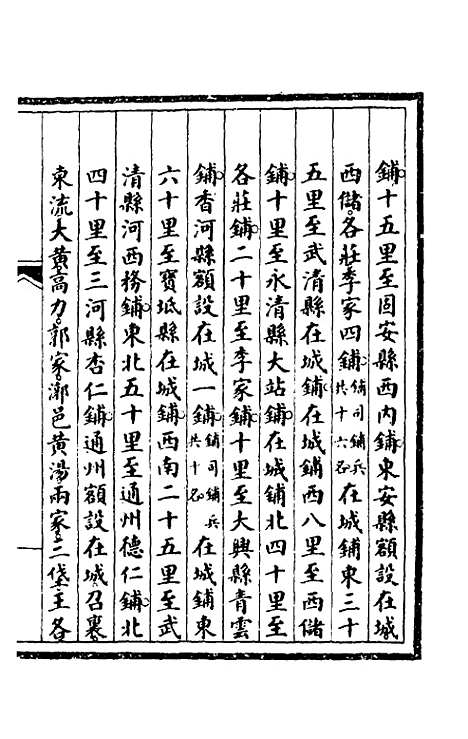 鋪十五里至固安縣西內鋪東安縣額設在城
西儲各莊李家四鋪鋪司鋪兵共十六名在城鋪東三十
五里至武清縣在城鋪在城鋪西八里至西儲
鋪十里至永清縣大站鋪在城鋪北四十里至
各莊鋪二十里至李家鋪十里至大興縣青雲
鋪香河縣額設在城一鋪鋪司鋪兵共十名在城鋪東
六十里至寶坻縣在城鋪西南二十五里至武
清縣河西務鋪東北五十里至通州德仁鋪北
四十里至三河縣杏仁鋪通州額設在城召襄
東流大黃高力郭家漷邑黃湯兩家二垡王各